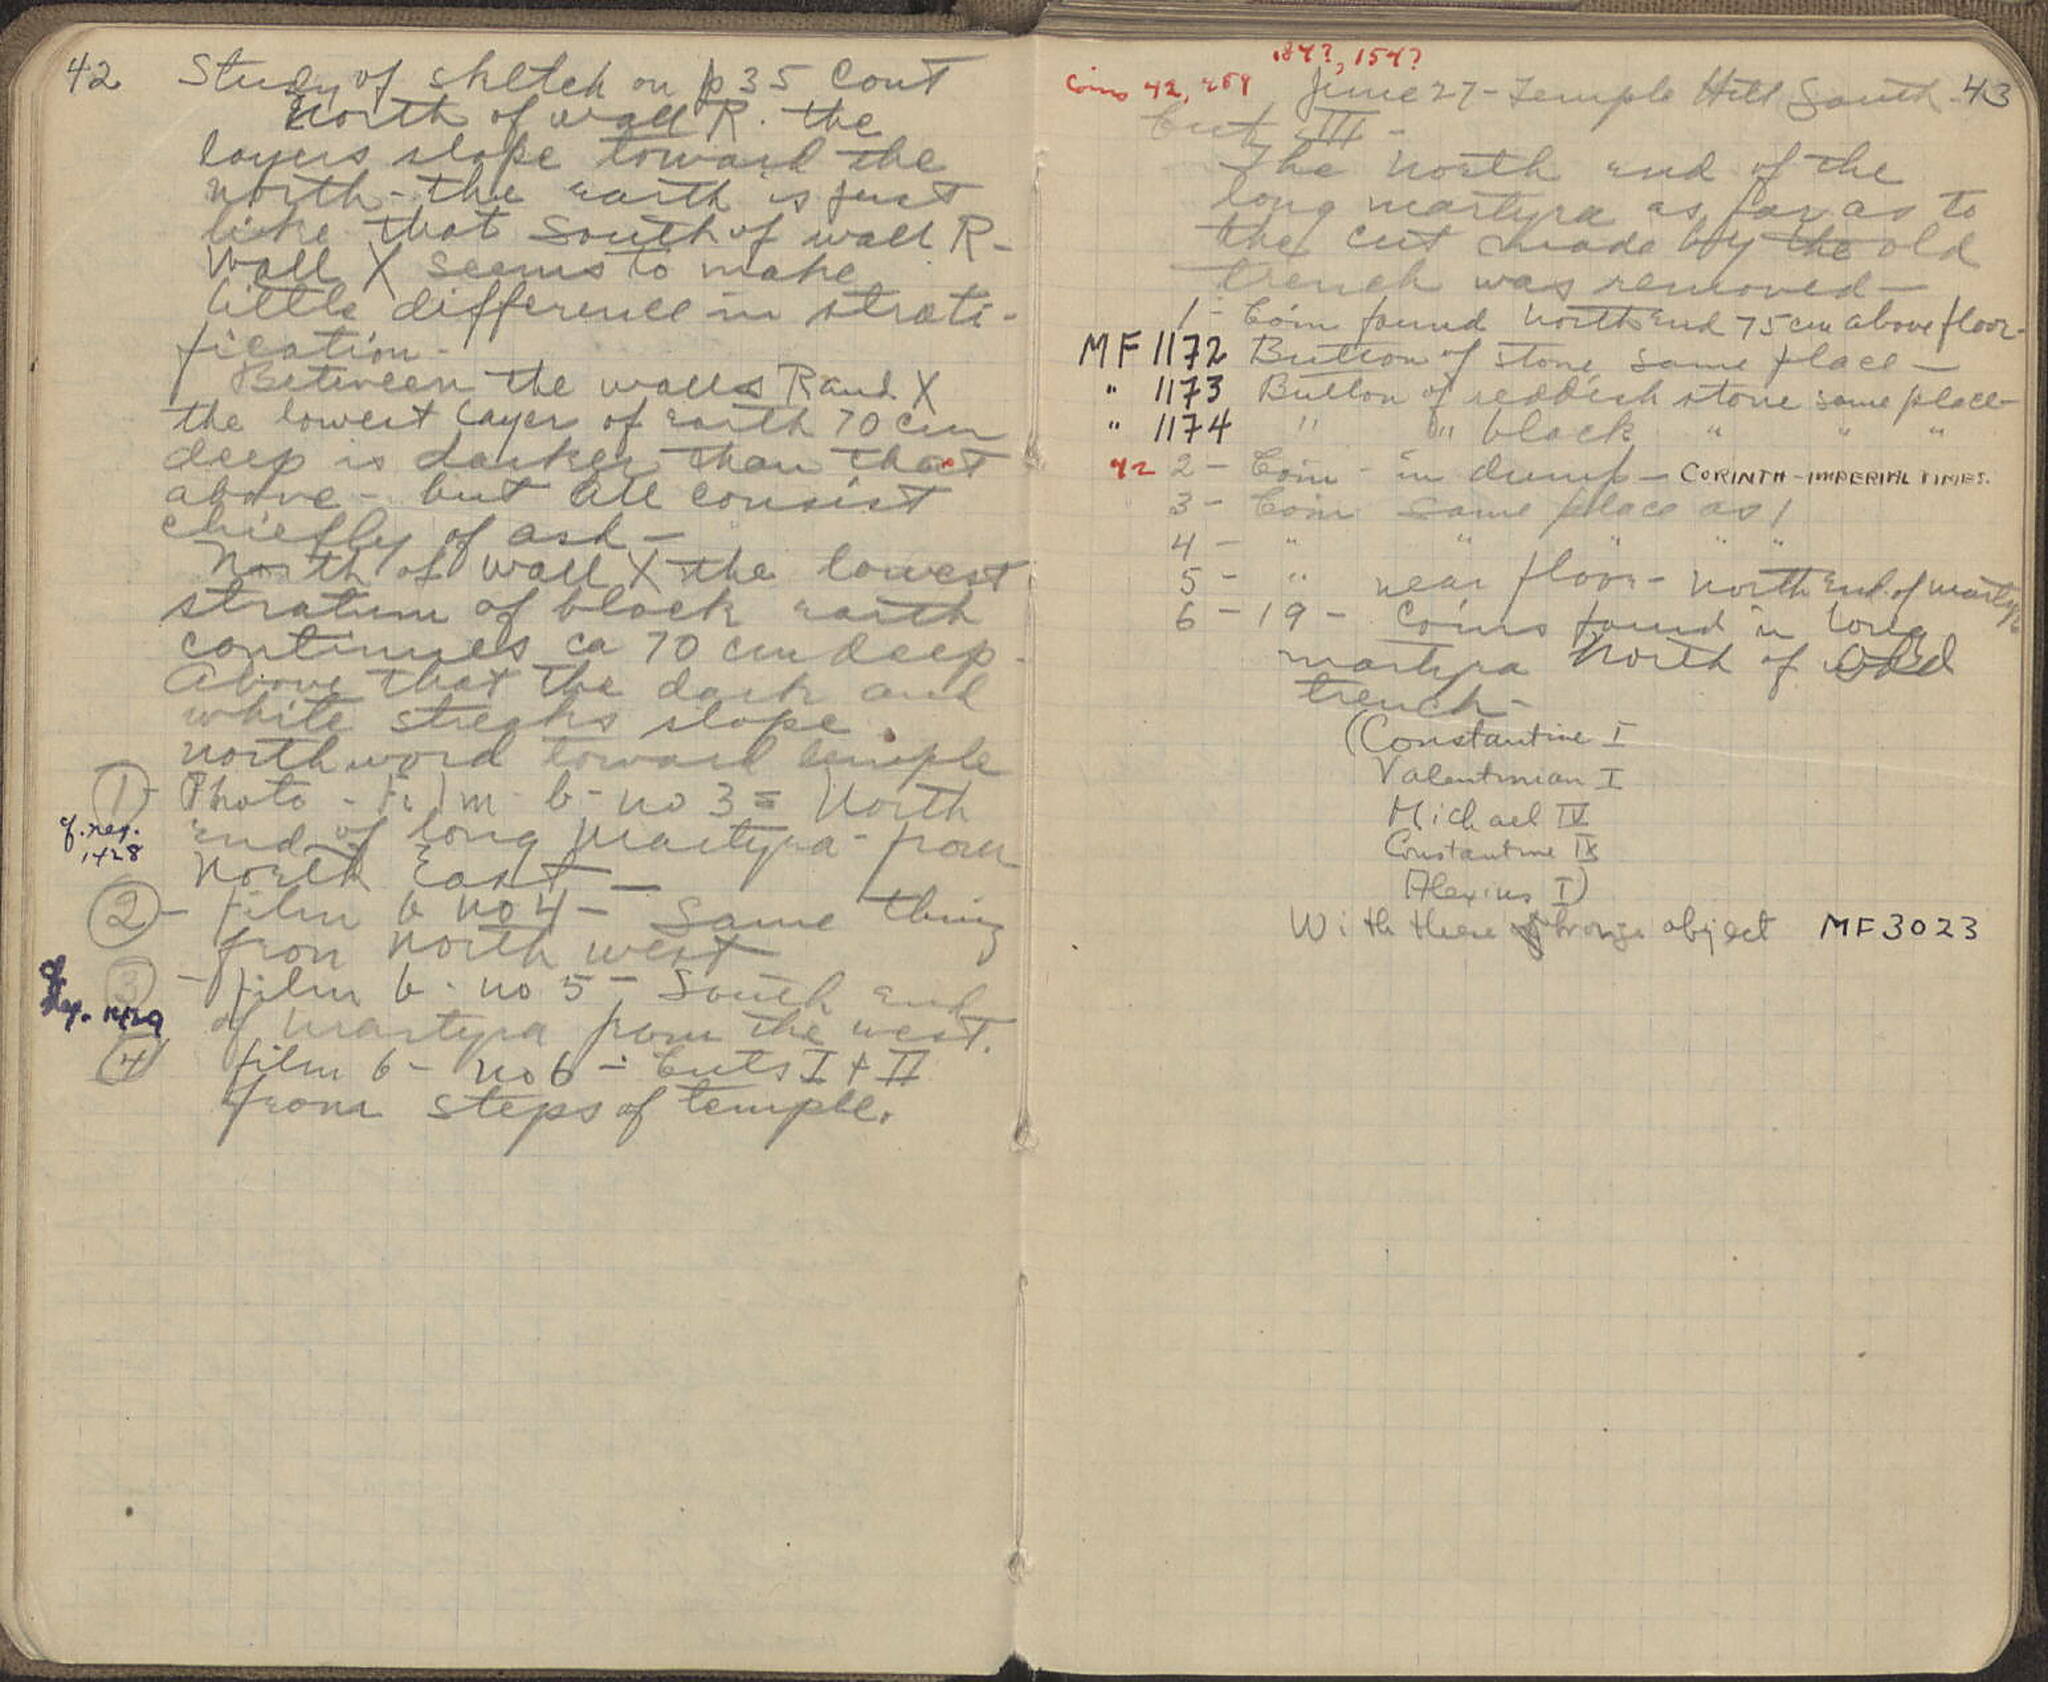 42 Study of sketch on p 35 Cont
North of wall R. the
layers slope toward the
north - the earth is just
like that South of wall R -
Wall X seems to make
little difference in strati-
fication -
Between the walls R and X
the lowest layer of earth 70 cm
deep is darker than that
above - but all consist
chiefly of ash -
North of wall X the lowest
stratum of black earth
continues ca 70 cm deep -
Above that the dark and
white streaks slope
northward toward temple
① - Photo - Film - 6 - no 3 = North
cf. neg. 1428
end of long martyra - from
North East -
② - film 6 no 4 - Same thing
from north west
③ - film 6 - no 5 - South end
cf. neg. 1429
of martyra from the west.
④ film 6 - no 6 - Cuts I + II
from steps of temple.
184?, 154?
Coins 42,
June 27 - Temple Hill South - 43
Cut III -
The north end of the
long martyra as far as to
the cut made by the old
trench was removed -
1 - Coin found North end 75 cm above floor -
MF 1172 Button of stone same place -
" 1173 Button of reddish stone same place -
" 1174 " " black " " "
42 2 - Coin - in dump - CORINTH - IMPERIAL TIMES.
3 - Coin same place as 1
4 - " " " " "
5 - " near floor - north end of martyra
6 - 19 - Coins found in long
martyra North of old
trench -
(Constantine I
Valentinian I
Michael IV
Constantine IX
Alexius I)
With these bronze object MF 3023